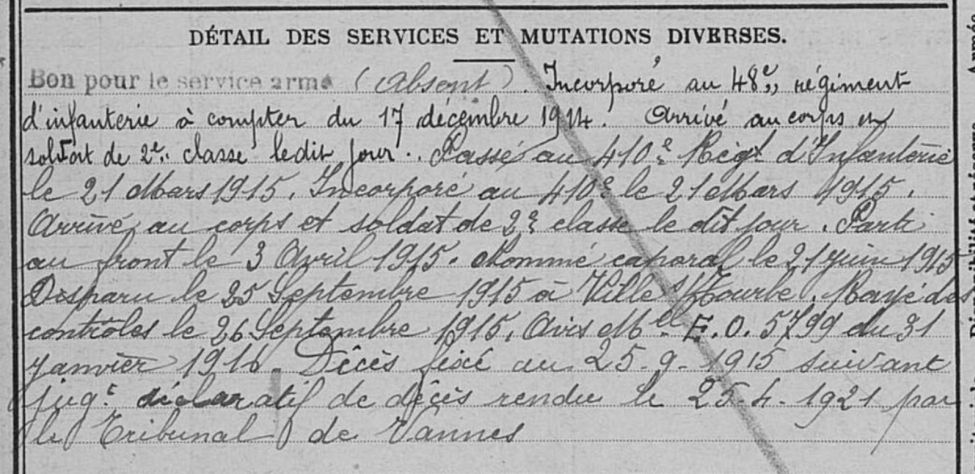 DÉTAIL DES SERVICES ET MUTATIONS DIVERSES.
Bon pour le service armé (Absent). Incorporé au 48e régiment
d'infanterie à compter du 17 décembre 1914. Arrivé au corps et
soldat de 2e classe ledit jour. Passé au 410e Régt d'Infanterie
le 21 Mars 1915. Incorporé au 410e le 21 Mars 1915.
Arrivé au corps et soldat de 2e classe le dit jour. Parti
au front le 3 Avril 1915. Nommé caporal le 21 juin 1915
Disparu le 25 Septembre 1915 à Ville s/Tourbe. Rayé des
contrôles le 26 Septembre 1915. Avis Mel E.O. 5799 du 31
janvier 1916. Décès fixé au 25-9-1915 suivant
jugt déclaratif de décès rendu le 25-4-1921 par
le Tribunal de Vannes